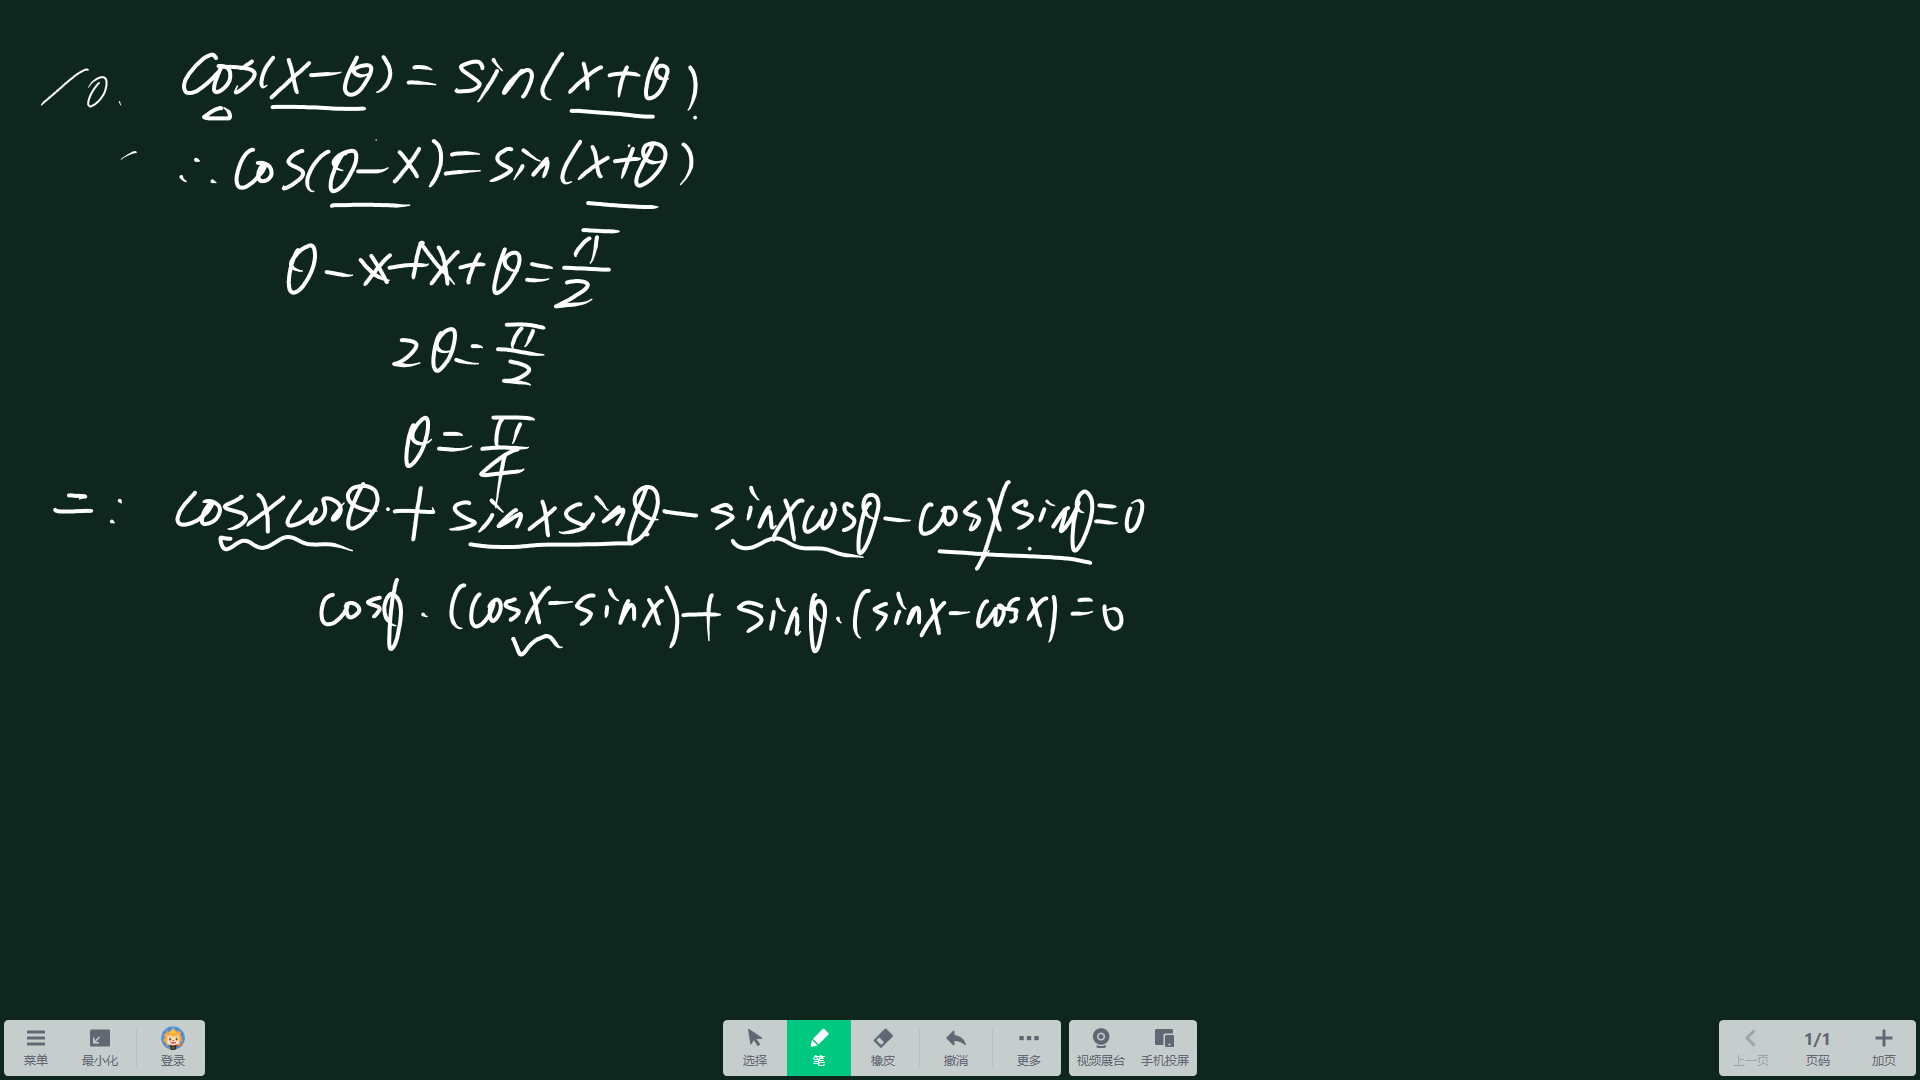 10. cos(x-θ)=sin(x+θ)
一 ∴cos(θ-x)=sin(x+θ)
θ-x+x+θ=π/2
2θ=π/2
θ=π/4
二: cosxcosθ+sinxsinθ-sinxcosθ-cosxsinθ=0
cosθ·(cosx-sinx)+sinθ·(sinx-cosx)=0
菜单 最小化 登录 选择 笔 橡皮 撤消 更多 视频展台 手机投屏 上一页 1/1 页码 加页